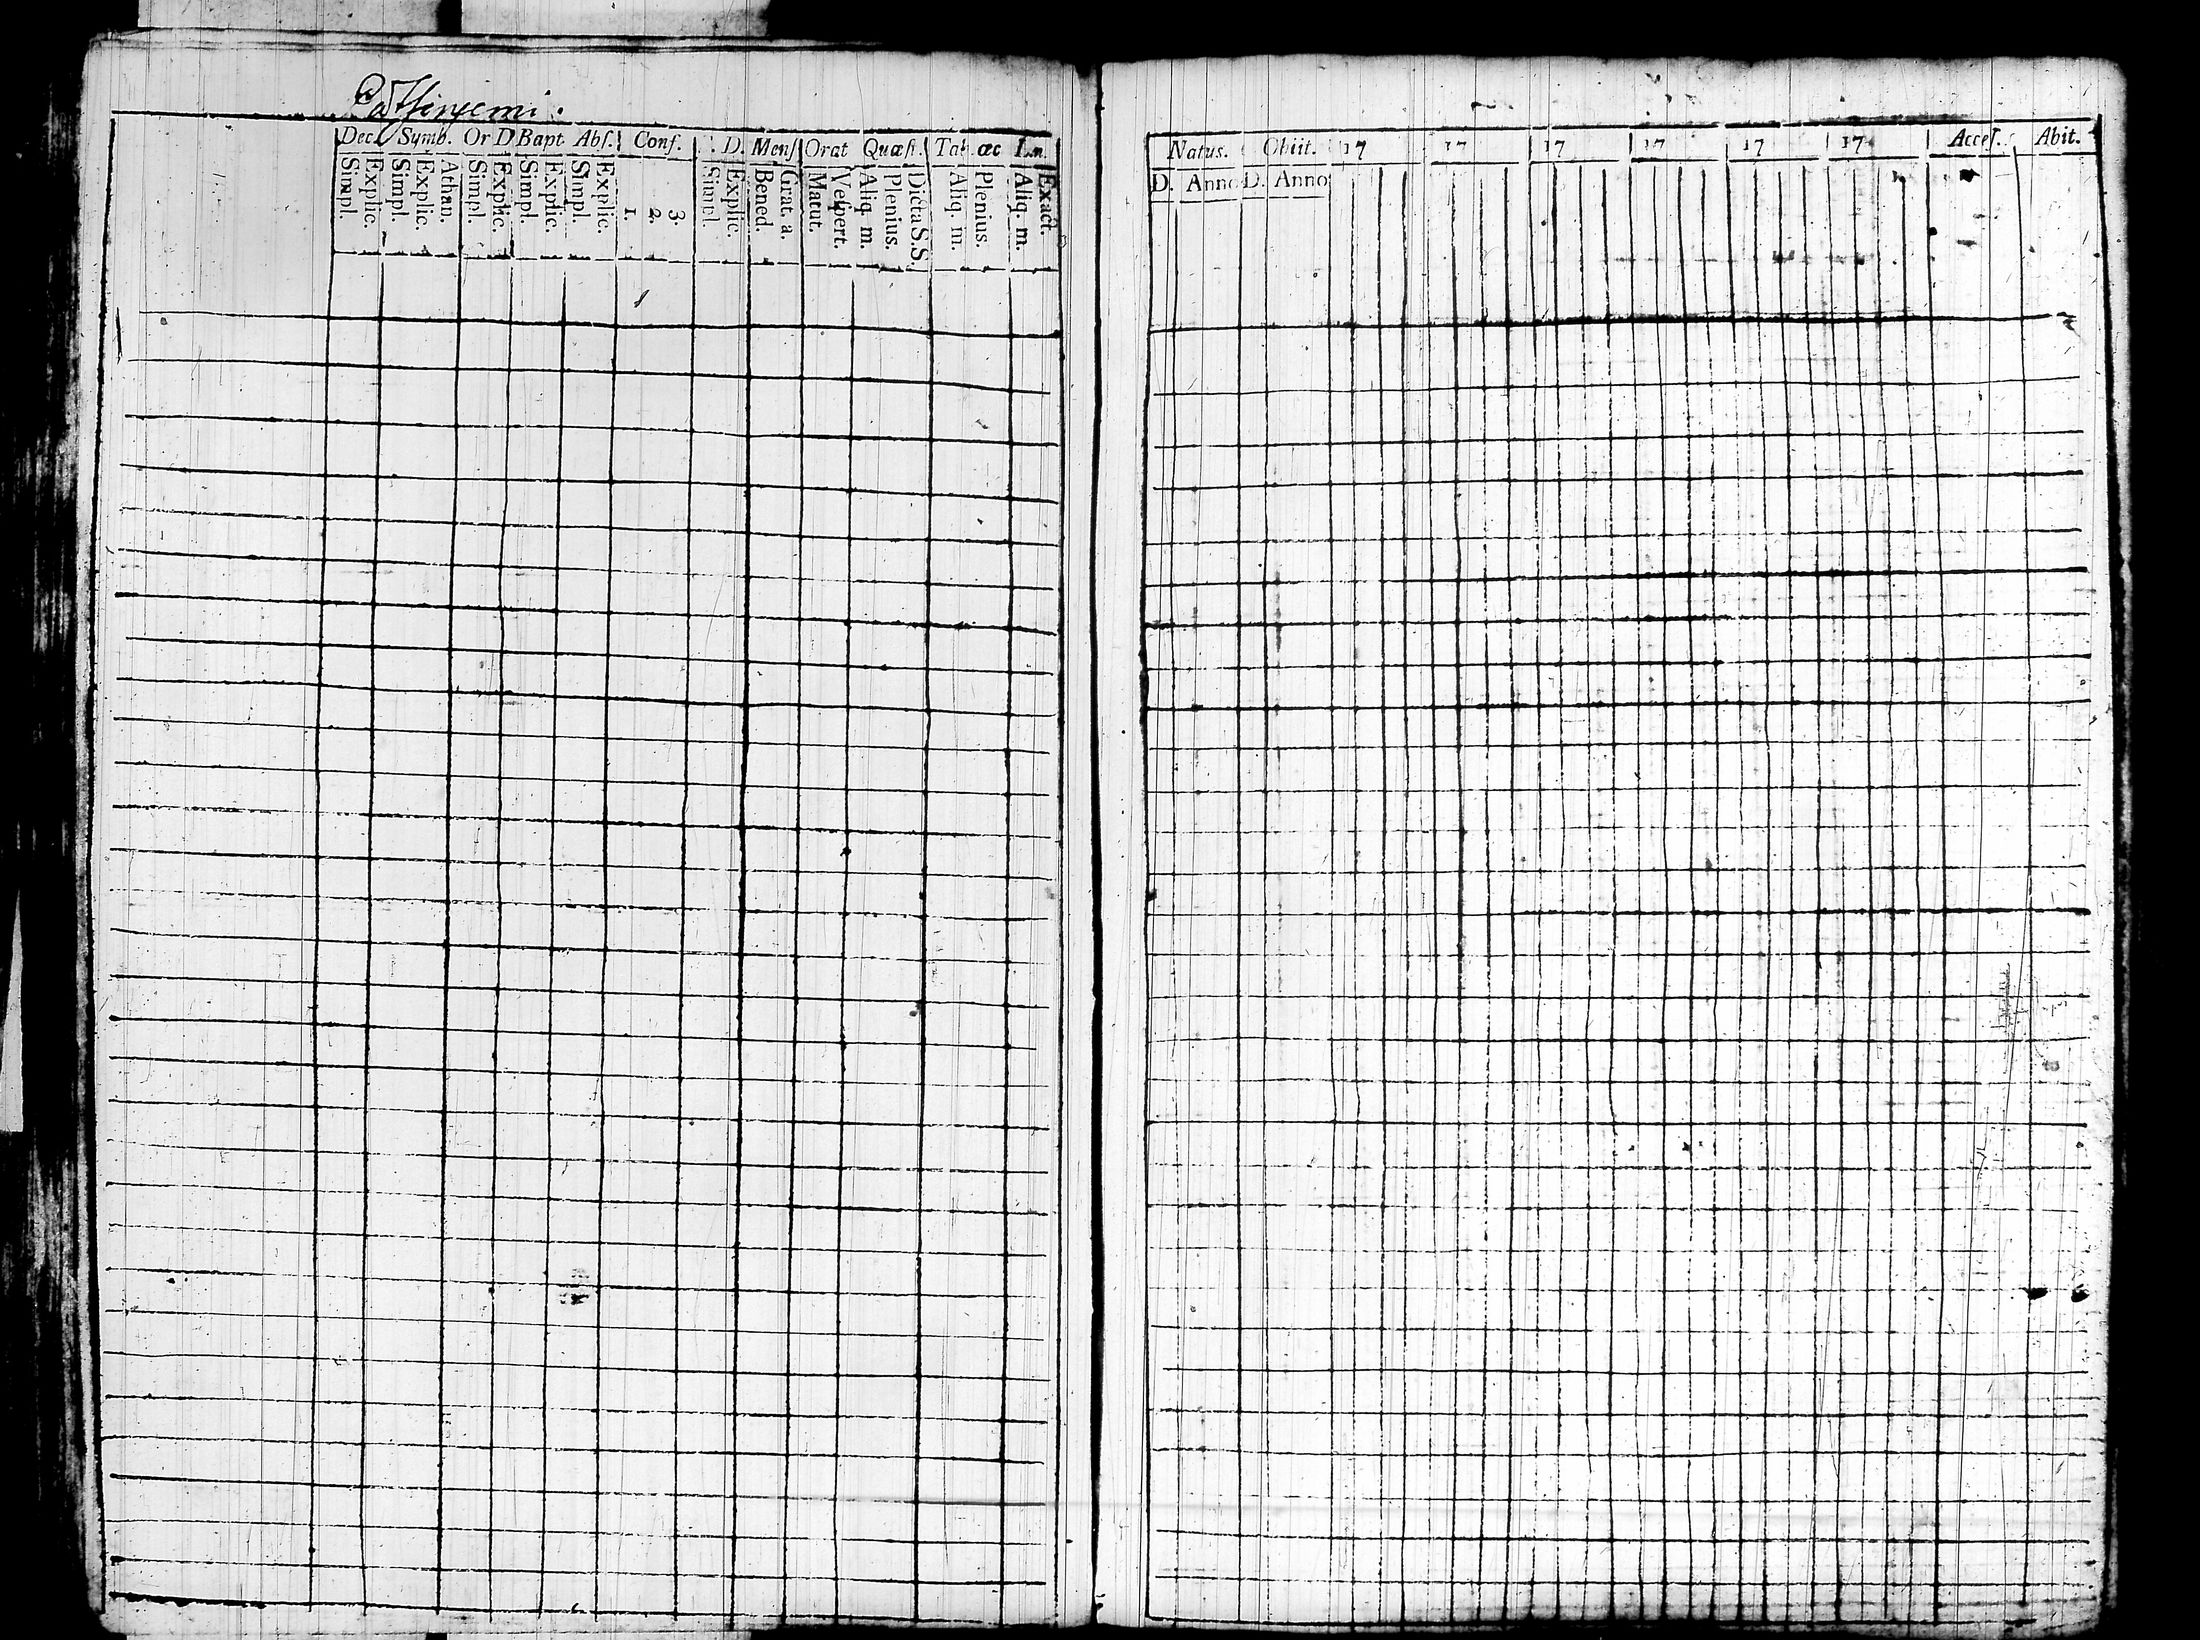 Dec. Symb. Or D Bapt Abſ. Conf. D. Menſ Orat Quæſt. Tab. œc Lu.
Simpl. Explic. Simpl. Explic. Athan. Simpl. Explic. Simpl. Explic. Simpl. Explic. 1. 2. 3. Simpl. Explic. Bened. Grat. a. Matut. Veſpert. Aliq. m. Plenius. Dicta S.S. Aliq. m. Plenius. Aliq. m. Exact.
Natus. Obiit. 17 17 17 17 17 17 Acceſ. Abit.
D. Anno D. Anno